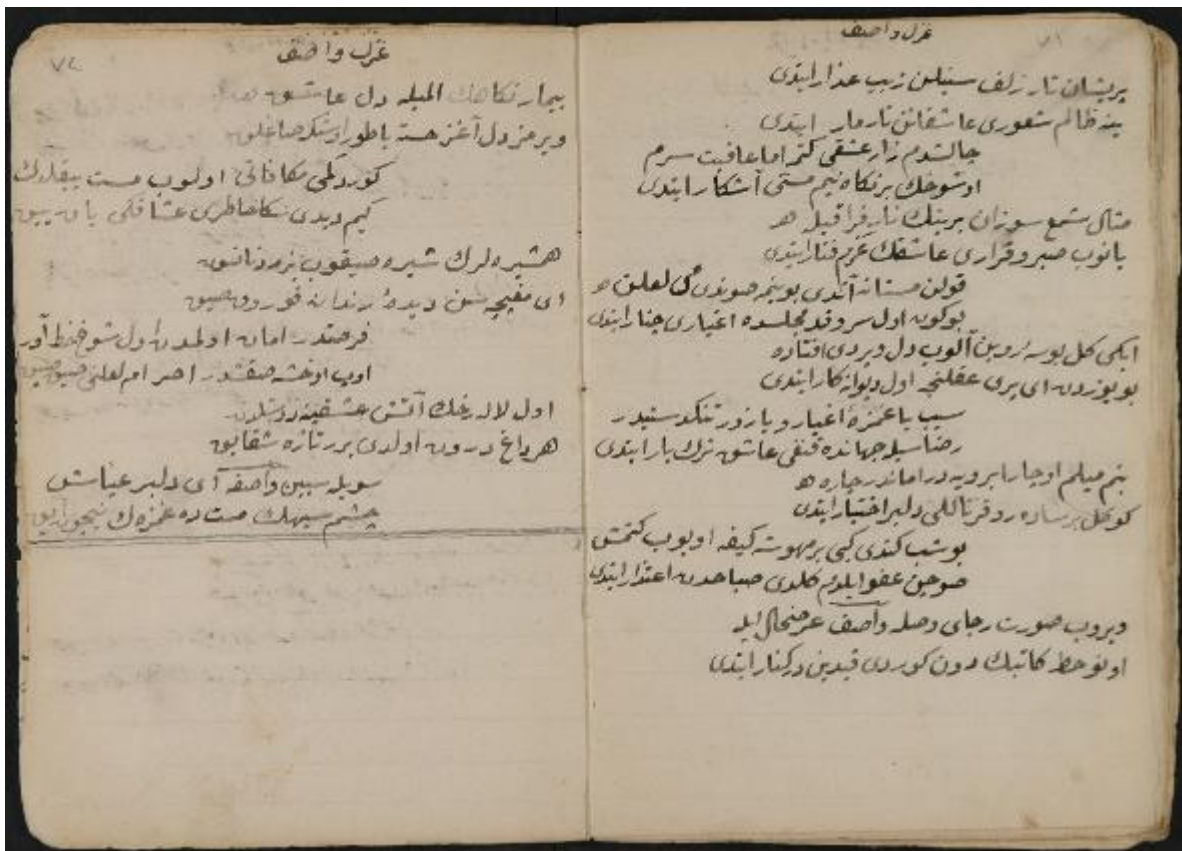 غزل واصف
٧١
پریشان تار زلف سنبلن زیب عذار ایتدی
ینه ظالم شعوری عاشقانن تارمار ایتدی
چالشدم زار عشقی کتم اما عاقبت سرم
او شوخك بر نکاه نیم مستی آشکار ایتدی
مثال شمع سوزان بربنك نار فراقیله
یانوب صبر و قراری عاشقك عزم فنا ایتدی
قولن مستانه آتدی بوینمه صوندی لعلن
بوکون اول سرو قد مجلسده اغیاری چنار ایتدی
ایکی کل بوسه روین آلوب دل ویردی افتاده
بو یوزدن ای پری عقلنجه اول دیوانه کار ایتدی
سبب یا غمزۀ اغیار و یا زور تنکدستیدر
رضاسیله جهانده قنغی عاشق ترك یار ایتدی
بنم میلم اوچار ابرویه در اما ندر چاره
کوکل بر ساده رو قرناللی دلبر اختیار ایتدی
بو شب کندی کبی بر مهوشه کیفه اویوب کتمش
صوچن عفو ایلدم کلدی صباحدن اعتذار ایتدی
ویروب صورت رجای وصله واصف عرضحال ایله
او نوخط کاتبك دون کوردی قیدین درکنار ایتدی
غزل واصف
٧٢
بیمار نکاهك المیله دل عاشق
ویرمز دل آغز خسته یاطور
کوردکمی مکافاتی اولوب مست ییقلدك
کیم دیدی سکا خاطری عشاقکی یان ییق
همشیره لرك شیره صیقوب
ای مغبچه سن دیدۀ رندانه قوروق صیق
فرصتدر امان اولمدن اول شوخ خط آور
اوپ اوخشه صقشدر احمر امر لعلنی صیق صیق
اول لاله رخك آتش عشقیله
هر داغ درون اولدی برر تازه شقایق
سویله سیین واصفه ای دلبر عیاش
چشم سیهك مست ده غمزه ك نیچون آیق